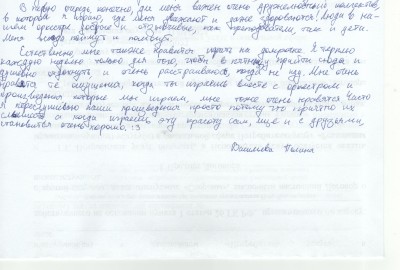 В первую очередь конечно, для меня важен очень дружелюбный коллектив,
в котором я играю, где меня уважают и даже здороваются! Люди в на-
шем оркестре добрые и отзывчивые, как преподаватели, так и дети.
Меня всегда поймут и помогут.
Естественно мне также нравится играть на домрочке. Я терплю
каждую неделю только для того, чтобы в пятницу прийти сюда и
душевно отдохнуть и очень расстраиваюсь, когда не иду. Мне очень
нравятся те ощущения, когда ты играешь вместе с оркестром и
произведения которые мы играем, мне тоже очень нравятся. Часто
я переслушиваю наши произведения просто потому что приятно их
слышать, а когда играешь эту красоту сам, ещё и с друзьями,
становится очень хорошо. :3
Данилова Полина